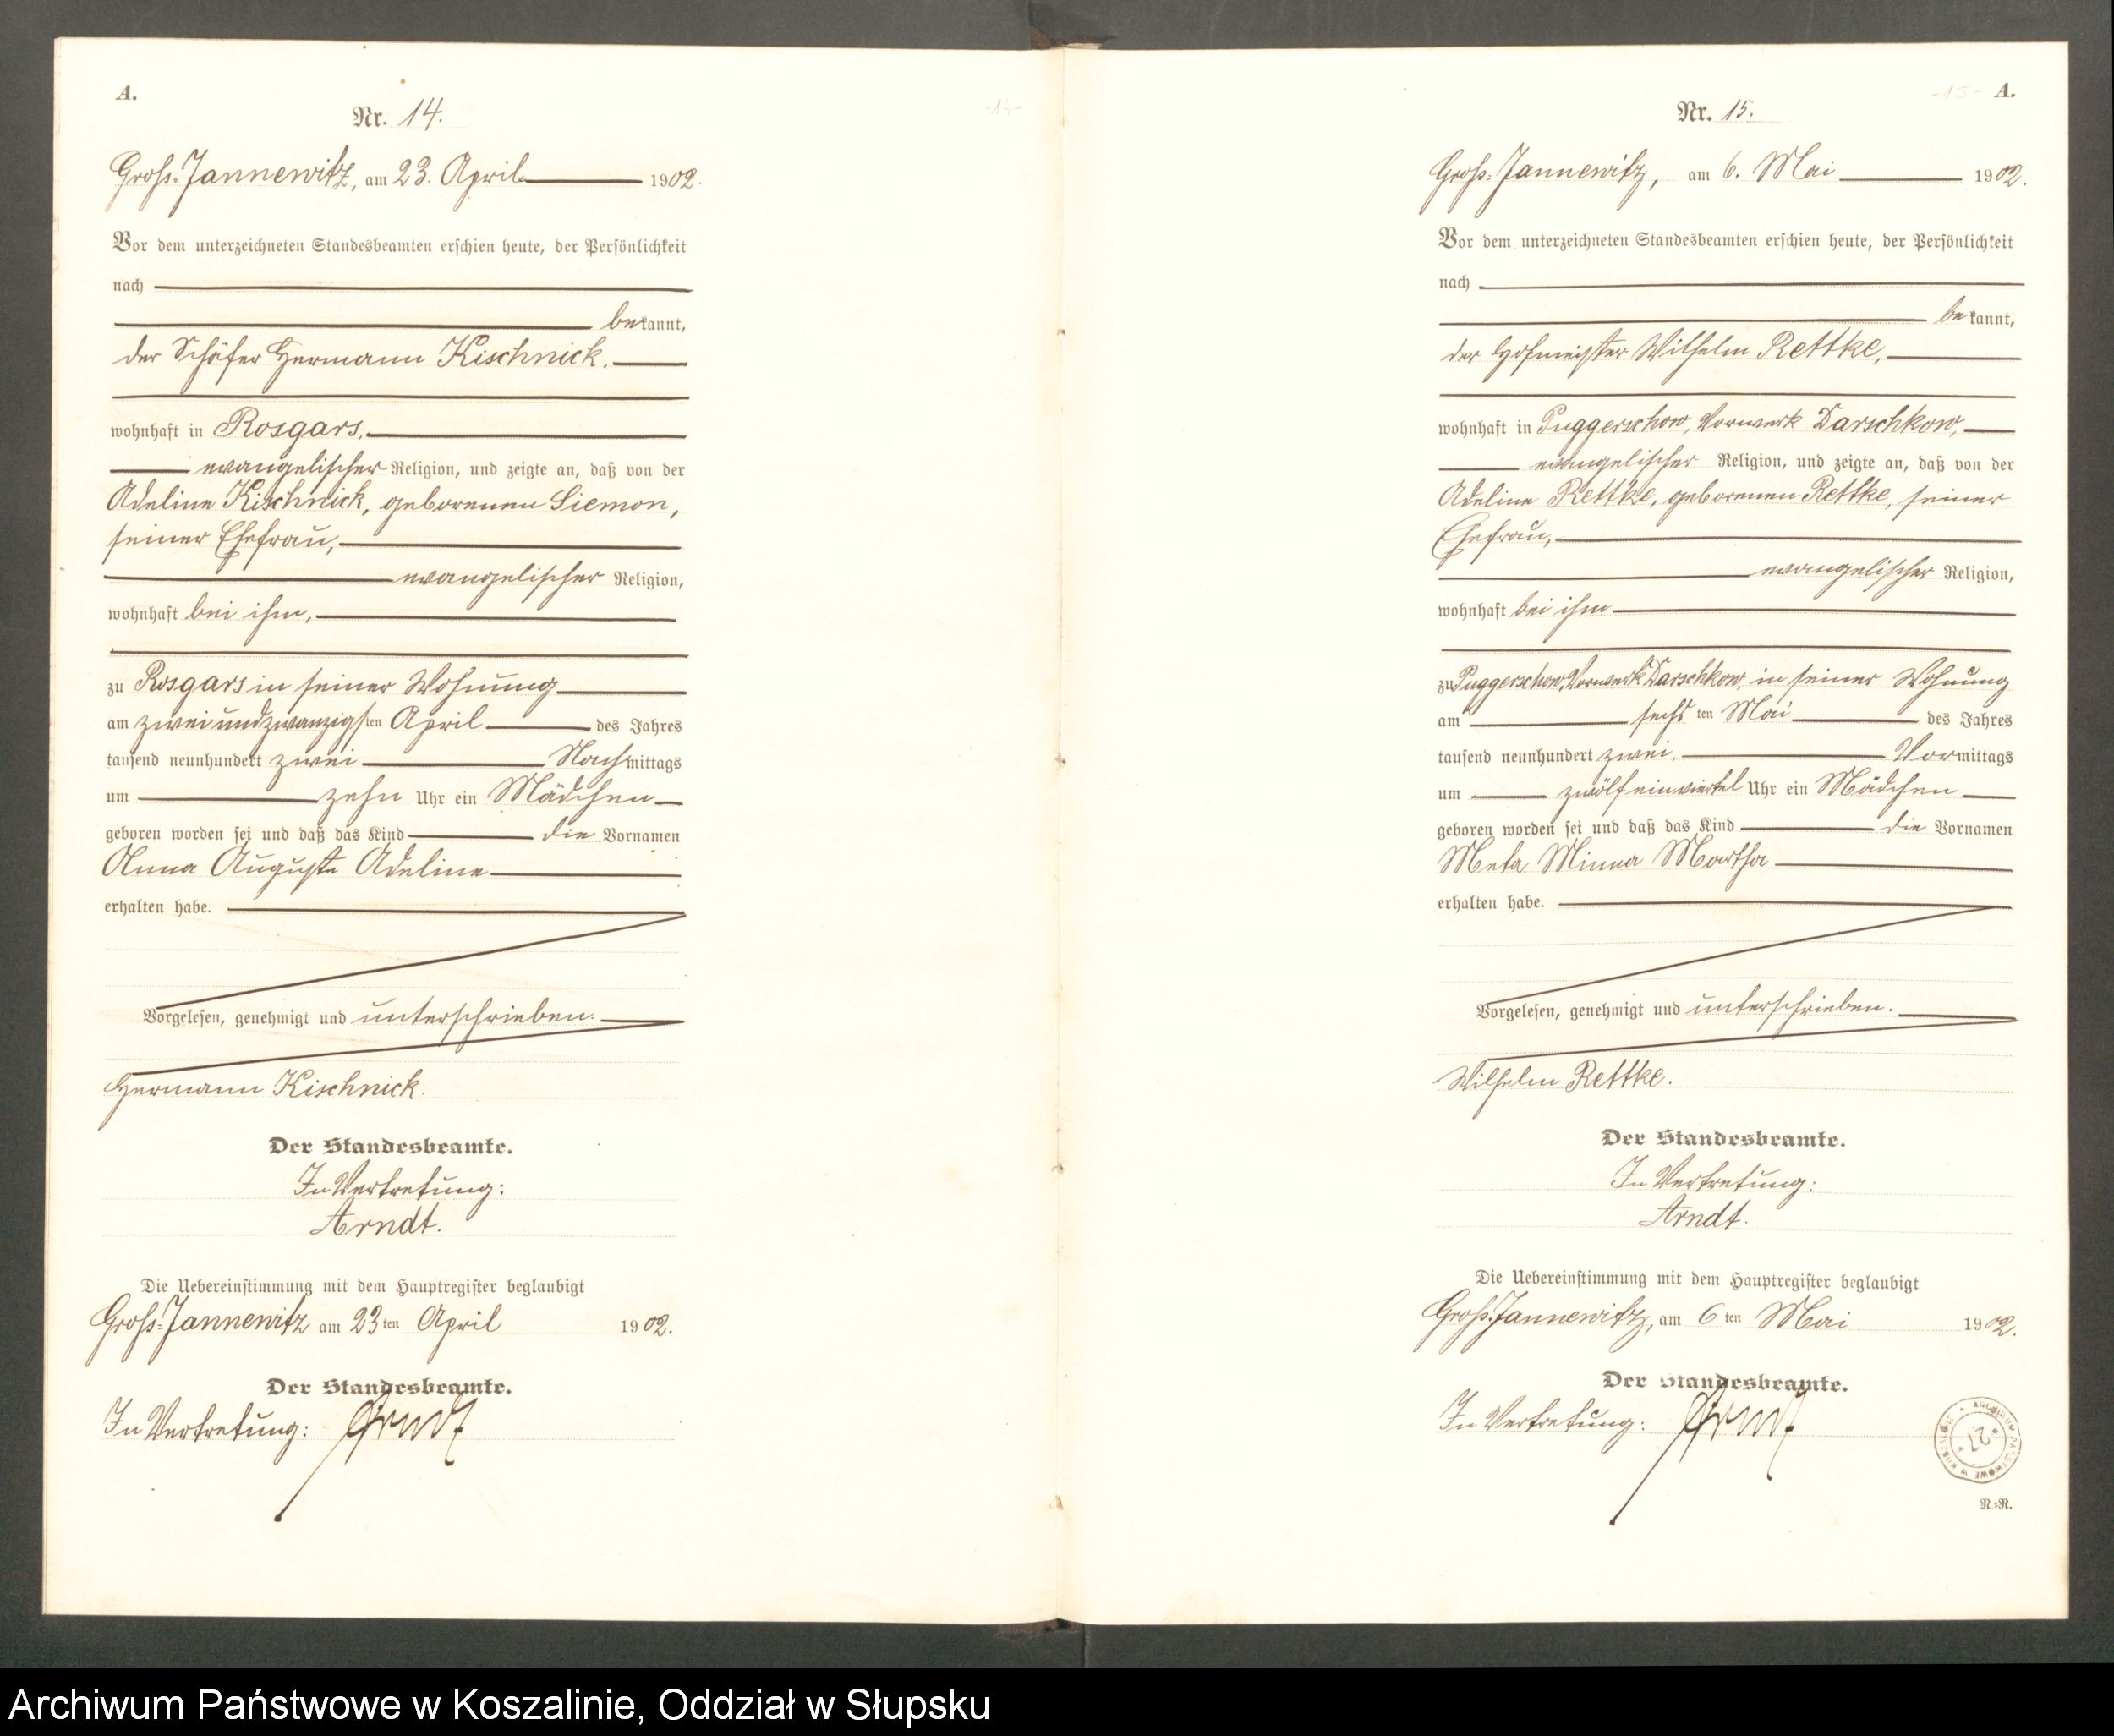 A.
Nr. 14.
Groß-Jannewitz, am 23. April 1902.
Vor dem unterzeichneten Standesbeamten erschien heute, der Persönlichkeit
nach
bekannt,
der Schäfer Hermann Kischnick,
wohnhaft in Rosgars,
evangelischer Religion, und zeigte an, daß von der
Adeline Kischnick, geborenen Siemon,
seiner Ehefrau,
evangelischer Religion,
wohnhaft bei ihm,
zu Rosgars in seiner Wohnung
am zweiundzwanzigsten April des Jahres
tausend neunhundert zwei Nachmittags
um zehn Uhr ein Mädchen
geboren worden sei und daß das Kind die Vornamen
Anna Auguste Adeline
erhalten habe.
Vorgelesen, genehmigt und unterschrieben.
Hermann Kischnick.
Der Standesbeamte.
In Vertretung:
Arndt.
Die Uebereinstimmung mit dem Hauptregister beglaubigt
Groß-Jannewitz am 23ten April 1902.
Der Standesbeamte.
In Vertretung: Arndt
-14-
-15- A.
Nr. 15.
Groß-Jannewitz, am 6. Mai 1902.
Vor dem unterzeichneten Standesbeamten erschien heute, der Persönlichkeit
nach
bekannt,
der Hofmeister Wilhelm Rettke,
wohnhaft in Puggerschow, Vorwerk Darschkow,
evangelischer Religion, und zeigte an, daß von der
Adeline Rettke, geborenen Rettke, seiner
Ehefrau,
evangelischer Religion,
wohnhaft bei ihm
zu Puggerschow, Vorwerk Darschkow, in seiner Wohnung
am sechsten Mai des Jahres
tausend neunhundert zwei, Vormittags
um zwölfeinviertel Uhr ein Mädchen
geboren worden sei und daß das Kind die Vornamen
Meta Minna Martha
erhalten habe.
Vorgelesen, genehmigt und unterschrieben.
Wilhelm Rettke.
Der Standesbeamte.
In Vertretung:
Arndt.
Die Uebereinstimmung mit dem Hauptregister beglaubigt
Groß-Jannewitz, am 6ten Mai 1902.
Der Standesbeamte.
In Vertretung: Arndt
ARCHIWUM PAŃSTWOWE W KOSZALINIE
27
N.=R.
Archiwum Państwowe w Koszalinie, Oddział w Słupsku